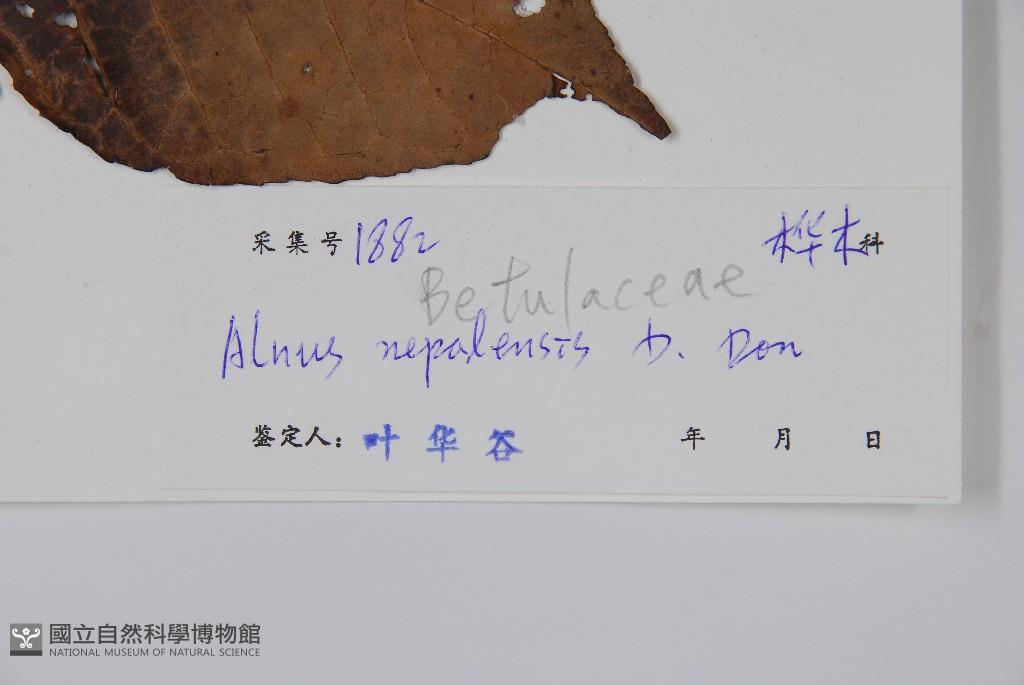 采集号 1882 桦木科
Betulaceae
Alnus nepalensis D. Don
鉴定人: 叶华谷 年 月 日
國立自然科學博物館
NATIONAL MUSEUM OF NATURAL SCIENCE